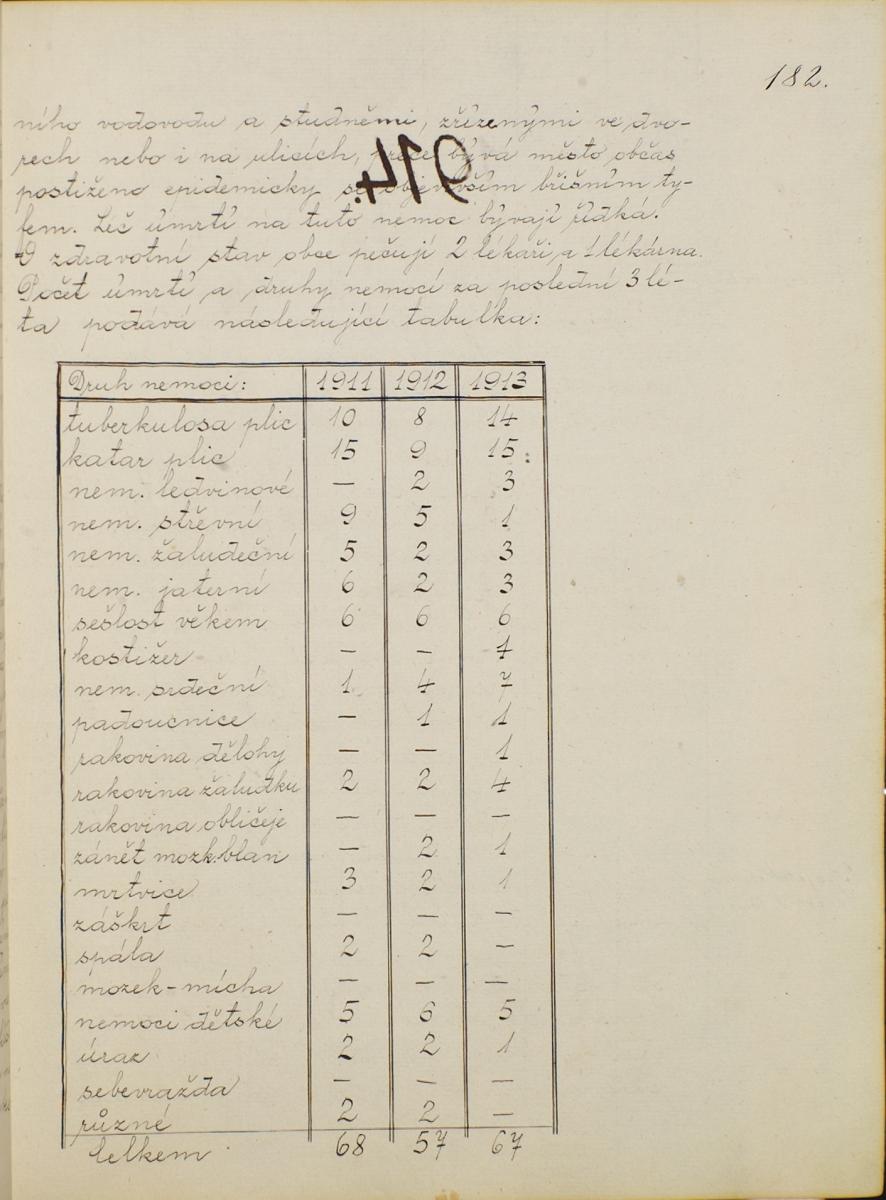 182.
ního vodovodu a studněmi, zřízenými ve dvo-
rech nebo i na ulicích, přece bývá město občas
postiženo epidemicky se objevivším břišním ty-
fem. Leč úmrtí na tuto nemoc bývají řídká.
O zdravotní stav obce pečují 2 lékaři a 1 lékárna.
Počet úmrtí a druhy nemocí za poslední 3 lé-
ta podává následující tabulka:
Druh nemoci: 1911 1912 1913
tuberkulosa plic 10 8 14
katar plic 15 9 15
nem. ledvinové — 2 3
nem. střevní 9 5 1
nem. žaludeční 5 2 3
nem. jaterní 6 2 3
sešlost věkem 6 6 6
kostižer — — 1
nem. srdeční 1 4 7
padoucnice — 1 1
rakovina dělohy — — 1
rakovina žaludku 2 2 4
rakovina obličeje — — —
zánět mozk. blan — 2 1
mrtvice 3 2 1
záškrt — — —
spála 2 2 —
mozek-mícha — — —
nemoci dětské 5 6 5
úraz 2 2 1
sebevražda — — —
různé 2 2 —
Celkem 68 57 67